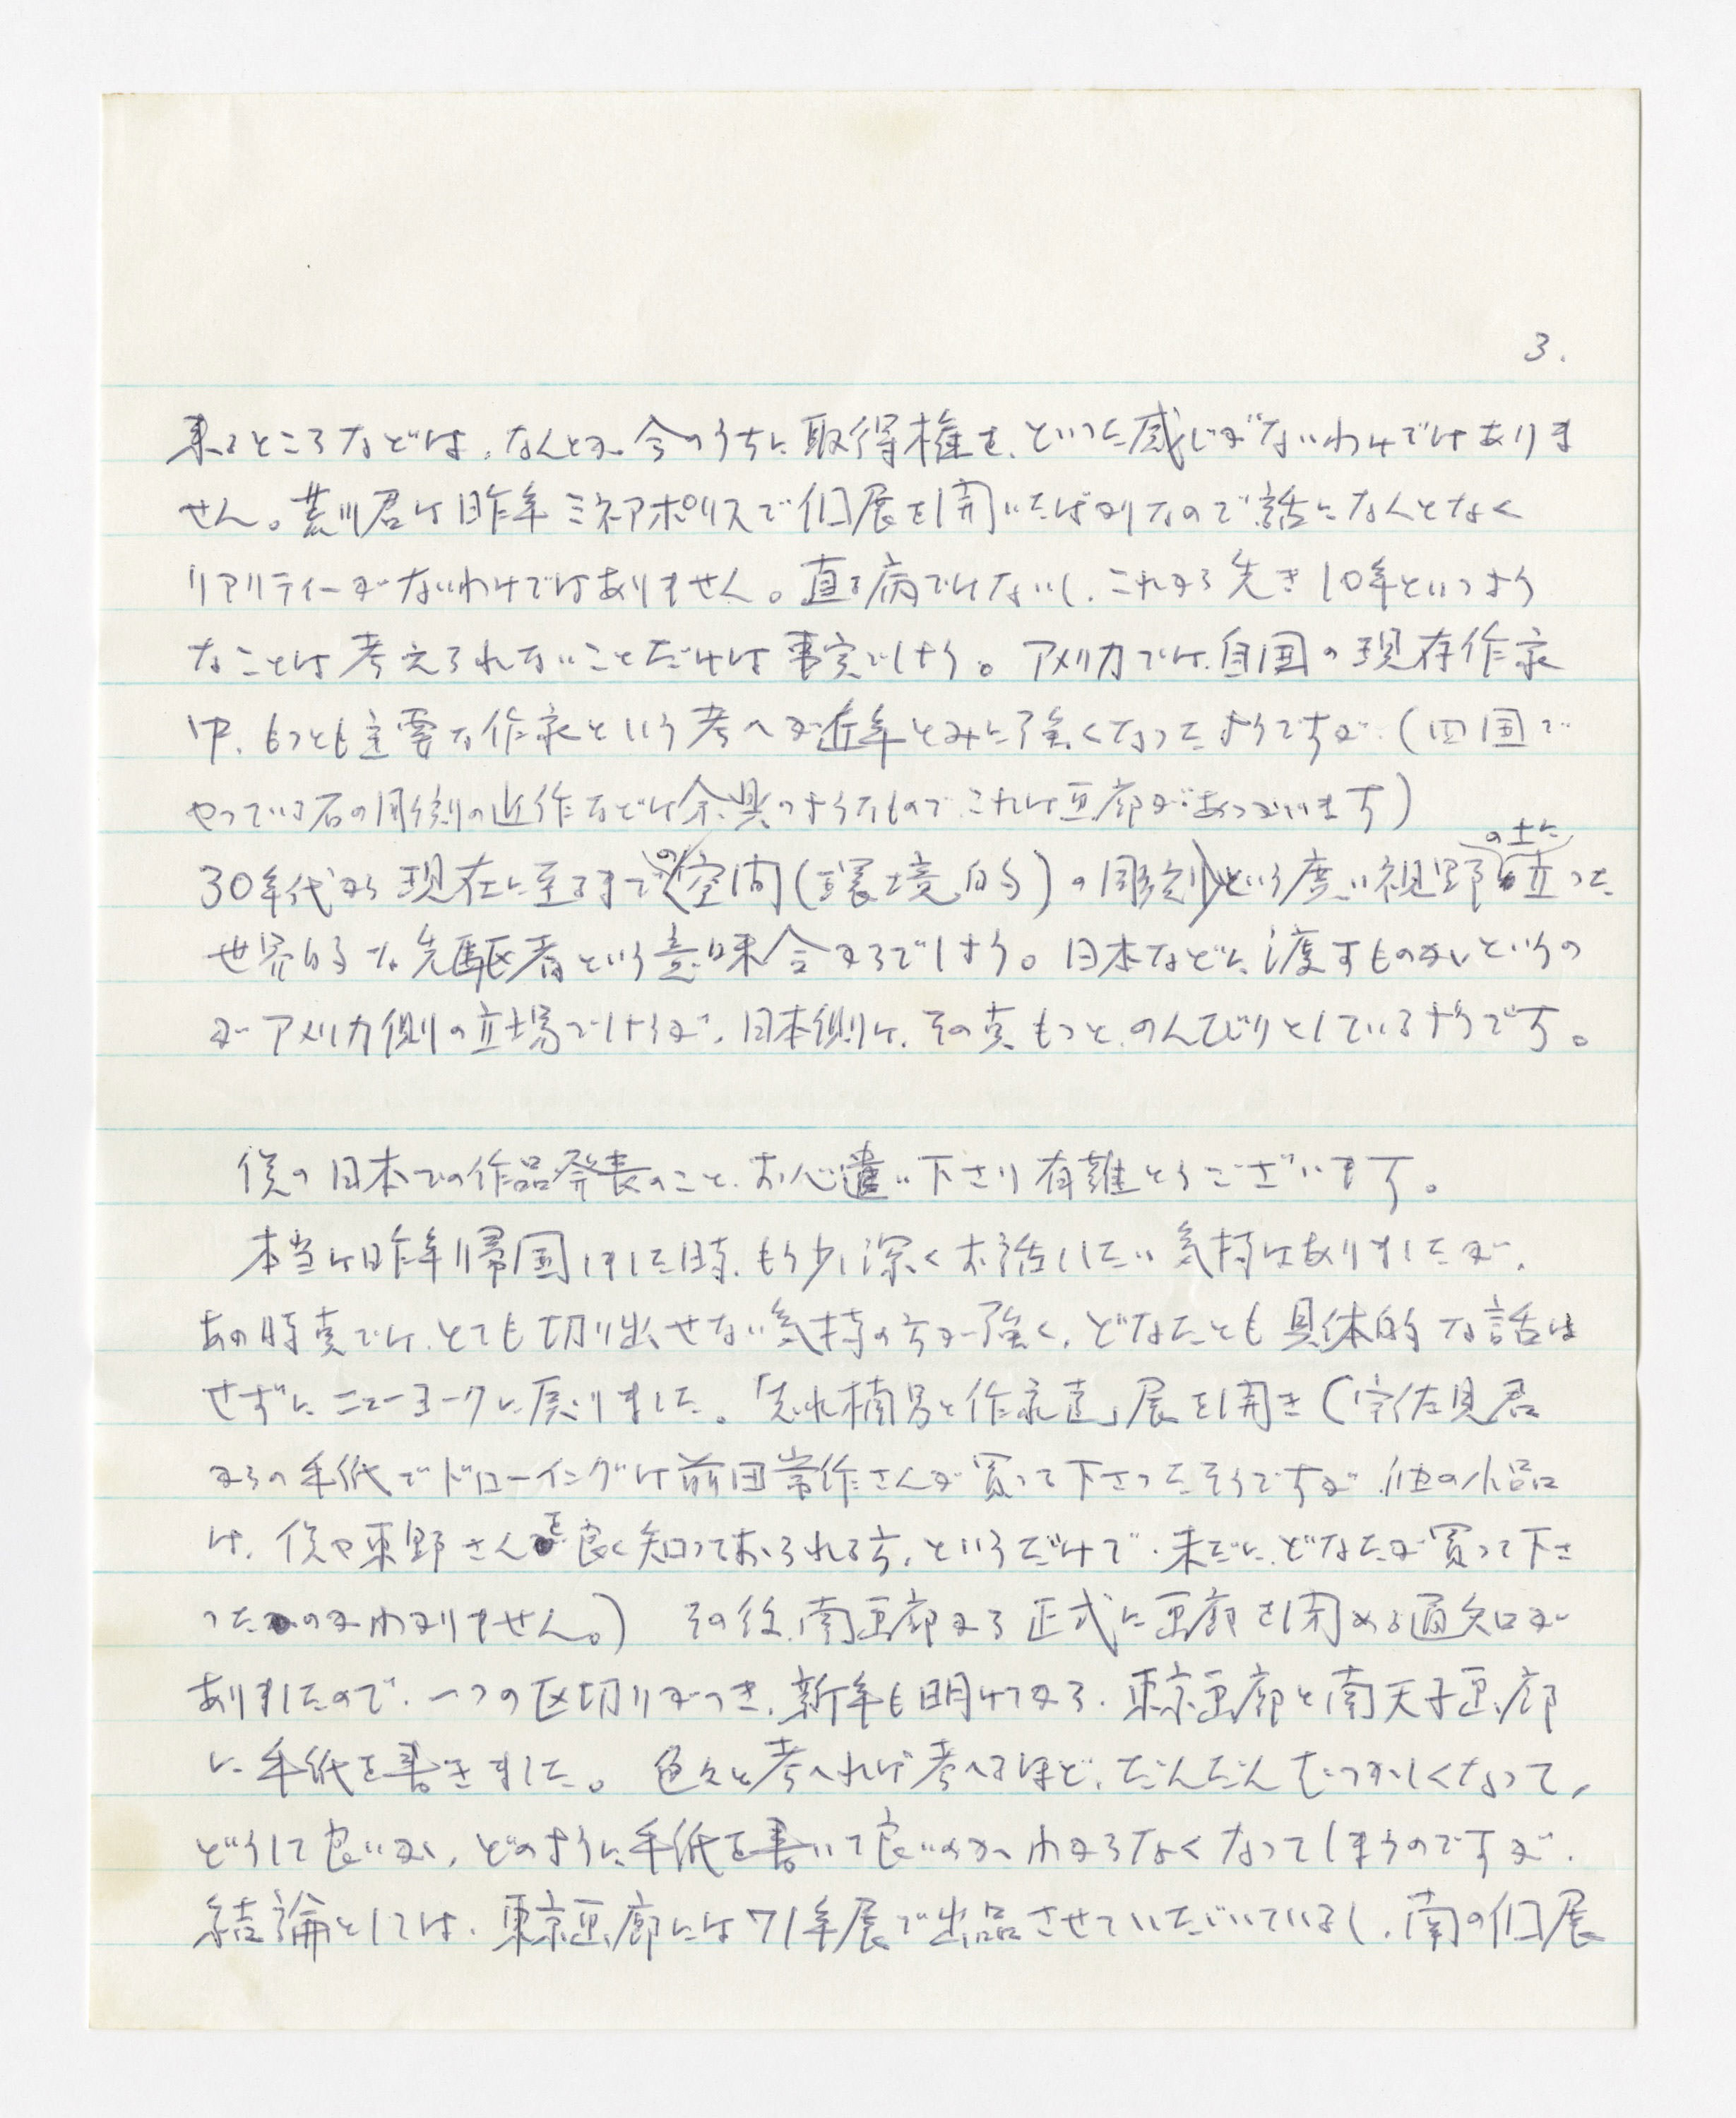 3.
来るところなどは、なんとか今のうちに取得権を、といった感じがないわけではありま
せん。荒川君は昨年ミネアポリスで個展を開いたばかりなので話になんとなく
リアリティーがないわけではありません。直る病ではないし、これから先き10年というよう
なことは考えられないことだけは事実でしょう。アメリカでは、自国の現存作家
中、もっとも主要な作家という考へが近年とみに強くなったようですが、(四国で
やっている石の彫刻の近作などは余興のようなもので、これは画廊があつかいます)
30年代から現在に至るまでの空間(環境的)の彫刻という広い視野の上に立った
世界的な先駆者という意味合からでしょう。日本などに渡すものかというの
がアメリカ側の立場でしょうが、日本側は、その点もっと、のんびりとしているようです。
僕の日本での作品発表のこと、お心遣い下さり有難とうございます。
本当は昨年帰国しました時、もう少し深くお話ししたい気持はありましたが、
あの時点では、とても切り出せない気持の方が強く、どなたとも具体的な話は
せずにニューヨークに戻りました。「志水楠男と作家達」展を開き(宇佐見君
からの手紙でドローイングは前田常作さんが買って下さったそうですが、他の小品
は、僕や東野さんを良く知っておられる方、というだけで、未だに、どなたが買って下さ
ったのかわかりません。) その後、南画廊から正式に画廊を閉める通知が
ありましたので、一つの区切りがつき、新年も明けてから、東京画廊と南天子画廊
に手紙を書きました。色々と考へれば考へるほど、だんだんむつかしくなって、
どうして良いか、どのように手紙を書いて良いのか、わからなくなってしまうのですが、
結論としては、東京画廊には71年展で出品させていただいているし、南の個展